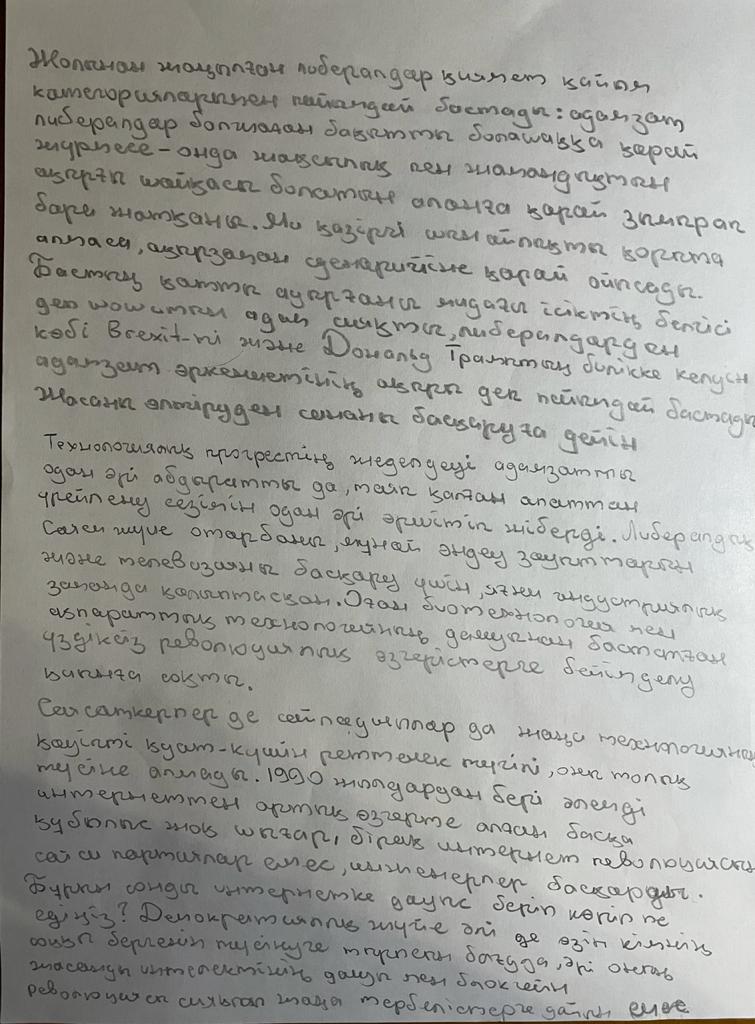 Жолынан жаңылған либералдар қиямет қайым
категорияларымен пайымдай бастады: адамзат
либералдар болжаған бақытты болашаққа қарай
жүрмесе – онда жақсылық пен жамандықтың
ақырғы шайқасы болатын алаңға қарай зымырап
бара жатқаны. Ми қазіргі шым-шытырықты қорыта
алмаса, ақырзаман сценарийіне қарай ойысады.
Бастың қатты ауырғаны мидағы ісіктің белгісі
деп шошитын адам сияқты, либералдардың
көбі Brexit-ті және Дональд Трамптың билікке келуін
адамзат өркениетінің ақыры деп пайымдай бастады
Масаны өлтіруден сананы басқаруға дейін
Технологиялық прогрестің жеделдеуі адамзатты
одан әрі абдыратты да, таяп қалған апаттан
үрейлену сезімін одан әрі өршітіп жіберді. Либералдық
Саяси жүйе отарбаны, мұнай өңдеу зауыттарын
және телевизияны басқару үшін, яғни индустриялық
заманда қалыптасқан. Оған биотехнология мен
ақпараттық технологияның дамуынан басталған
үздіксіз революциялық өзгерістерге бейімделу
қиынға соқты.
Саясаткерлер де сайлаушылар да жаңа технологияның
қауіпті қуат-күшін реттемек түгілі, оны толық
түсіне алмады. 1990 жылдардан бері әлемді
интернеттен артық өзгерте алған басқа
құбылыс жоқ шығар, бірақ интернет революциясын
саяси партиялар емес, инженерлер басқарды.
Бұрын соңды интернетке дауыс беріп көріп пе
едіңіз? Демократиялық жүйе әлі де өзін кімнің
соққы бергенін түсінуге тырысып бағуда, әрі оның
жасанды интеллектінің дамуы мен блокчейн
революциясы сияқты жаңа тербелістерге дайын емес